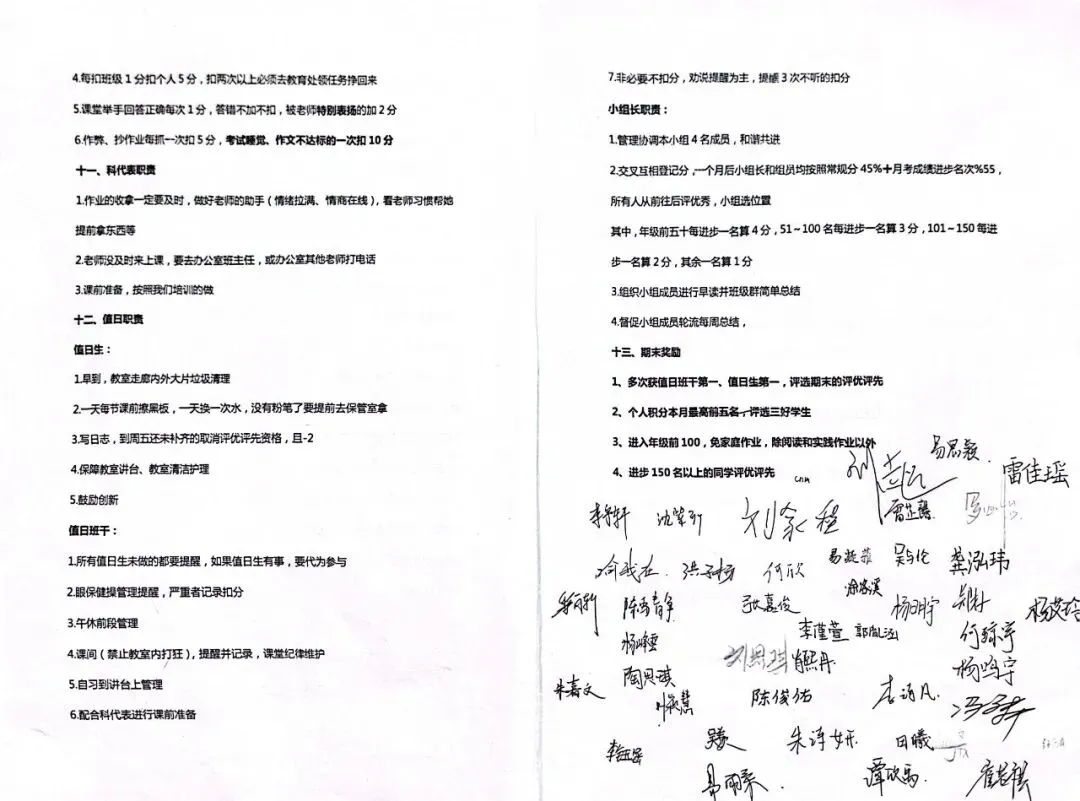 4.每扣班级1分扣个人5分，扣两次以上必须去教育处领任务挣回来
5.课堂举手回答正确每次1分，答错不加不扣，被老师特别表扬的加2分
6.作弊、抄作业每抓一次扣5分，考试睡觉、作文不达标的一次扣10分
十一、科代表职责
1.作业的收拿一定要及时，做好老师的助手（情绪拉满、情商在线），看老师习惯帮她
提前拿东西等
2.老师没及时来上课，要去办公室班主任，或办公室其他老师打电话
3.课前准备，按照我们培训的做
十二、值日职责
值日生：
1.早到，教室走廊内外大片垃圾清理
2.一天每节课前擦黑板，一天换一次水，没有粉笔了要提前去保管室拿
3.写日志，到周五还未补齐的取消评优评先资格，且-2
4.保障教室讲台、教室清洁护理
5.鼓励创新
值日班干：
1.所有值日生未做的都要提醒，如果值日生有事，要代为参与
2.眼保健操管理提醒，严重者记录扣分
3.午休前段管理
4.课间（禁止教室内打狂），提醒并记录，课堂纪律维护
5.自习到讲台上管理
6.配合科代表进行课前准备
7.非必要不扣分，劝说提醒为主，提醒3次不听的扣分
小组长职责：
1.管理协调本小组4名成员，和谐共进
2.交叉互相登记分，一个月后小组长和组员均按照常规分45%+月考成绩进步名次%55，
所有人从前往后评优秀，小组选位置
其中，年级前五十每进步一名算4分，51~100名每进步一名算3分，101~150每进
步一名算2分，其余一名算1分
3.组织小组成员进行早读并班级群简单总结
4.督促小组成员轮流每周总结，
十三、期末奖励
1、多次获值日班干第一、值日生第一，评选期末的评优评先
2、个人积分本月最高前五名，评选三好学生
3、进入年级前100，免家庭作业，除阅读和实践作业以外
4、进步150名以上的同学评优评先
雷佳瑶
刘家程
何欣 龚泓玮
张嘉俊 杨明宇
李瑾萱 何琼宇
陶思琪 杨鸣宁
朱嘉文 陈俊佑 李诗凡
日曦
易雨柔